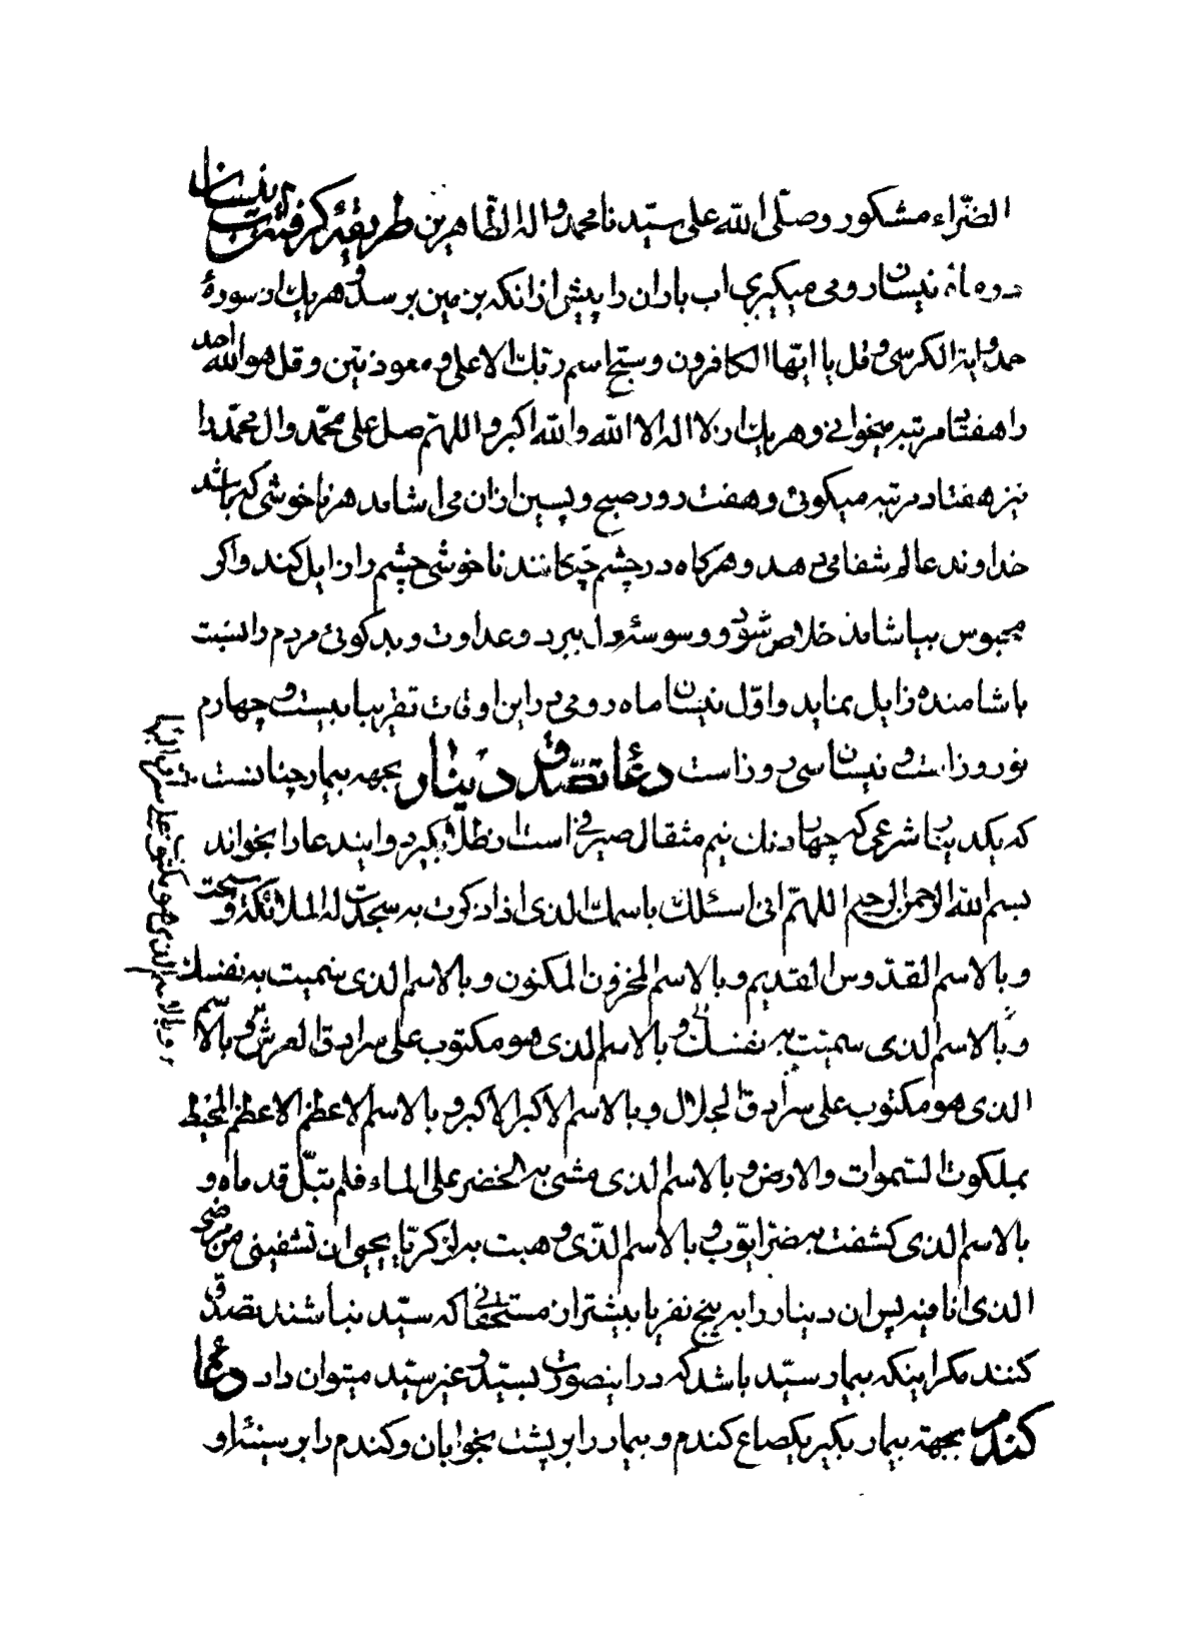 الضّراء مشکور وصلّی الله علی سیّدنا محمد واله الطّاهرین طریقهٔ گرفتن آب نیسان
در ماه نیسان رومی میگیری اب باران را پیش از انکه بزمین برسد و هر یک از سورهٔ
حمد و ایة الکرسی و قل یا ایّها الکافرون و سبّح اسم ربّک الاعلی و معوذتین و قل هو الله احد
را هفتاد مرتبه میخوانی و هر یک از لا اله الا الله والله اکبر و اللهمّ صل علی محمّد وال محمّد را
نیز هفتاد مرتبه میکوئی و هفت روز صبح و پسین از ان می اشامد هر ناخوشی که باشد
خداوند عالم شفا میدهد و هرکاه در چشم چکانند ناخوشی چشم را زایل کند واکر
محبوس بیاشامد خلاص شود و وسوسهٔ دل ببرد و عداوت و بدکوئی مردم را نسبت
باشامنده زایل نماید و اوّل نیسان ماه رومی در این اوقات تقریبا بیست و چهارم
نوروز است و نیسان سی روز است دعاء تصدّق دینار بجهه بیمار چنانست
که یکدینار شرعی که چهار دنک نیم مثقال صیرفی است از طلا بکیرد و ایندعا را بخواند
بسم الله الرحمن الرحیم اللهمّ انی اسئلک باسمک الذی اذا ذکرت به سجدت له الملائکة و سبحت
و بالاسم القدّوس القدیم و بالاسم المخزون المکنون و بالاسم الذی سمیت به نفسک
و بالاسم الذی سمیت به نفسک و بالاسم الذی هو مکتوب علی سرادق العرش و بالاسم
الذی هو مکتوب علی سرادق الجلال و بالاسم الاکبر الاکبر و بالاسم الاعظم الاعظم المحیط
بملکوت السّموات والارض و بالاسم الذی مشی به الخضر علی الماء فلم تبتلّ قدماه و
بالاسم الذی کشفت به ضرّ ایّوب و بالاسم الّذی وهبت به لزکریّا یحیی ان تشفینی من مرضی
الذی انا فیه پس ان دینار را به پنج نفر یا بیشتر از مستحقانی که سیّد نباشند تصدق
کنند مکر اینکه بیمار سیّد باشد که در اینصورت بسیّد و غیر سیّد میتوان داد دعاء
کندم بجهة بیمار بکیر یکصاع کندم و بیمار را بر پشت بخوابان و کندم را بر سینهٔ او
و بالاسم الذی هو مکتوب علی سرادق البهاء